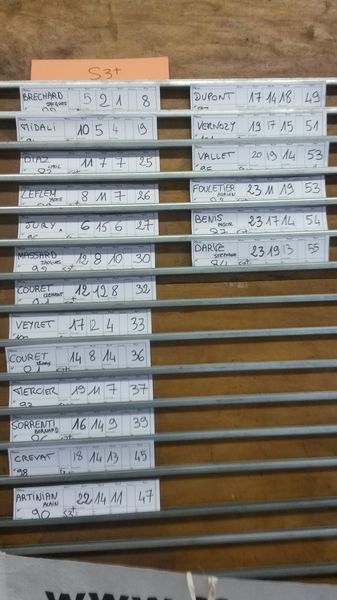 S3+
BRECHARD JACQUES 5 2 1 8
MIDALI 10 5 4 19
DIAZ 11 7 7 25
LEFLEM YVES 8 11 7 26
JURY 6 15 6 27
MASSARD JACQUES 12 8 10 30
COURET CLEMENT 12 12 8 32
VEYRET 17 12 4 33
COURET 14 8 14 36
MERCIER 19 11 7 37
SORRENTI BERNARD 16 14 9 39
CREVAT 18 14 13 45
98
ARTINIAN ALAIN 22 14 11 47
90 S3+
DUPONT 17 14 18 49
VERNOZY 19 17 15 51
VALLET 20 19 14 53
FOULETIER ADRIEN 23 11 19 53
BENIS PASCAL 23 17 14 54
DARVE STEPHANE 23 19 13 55
www.